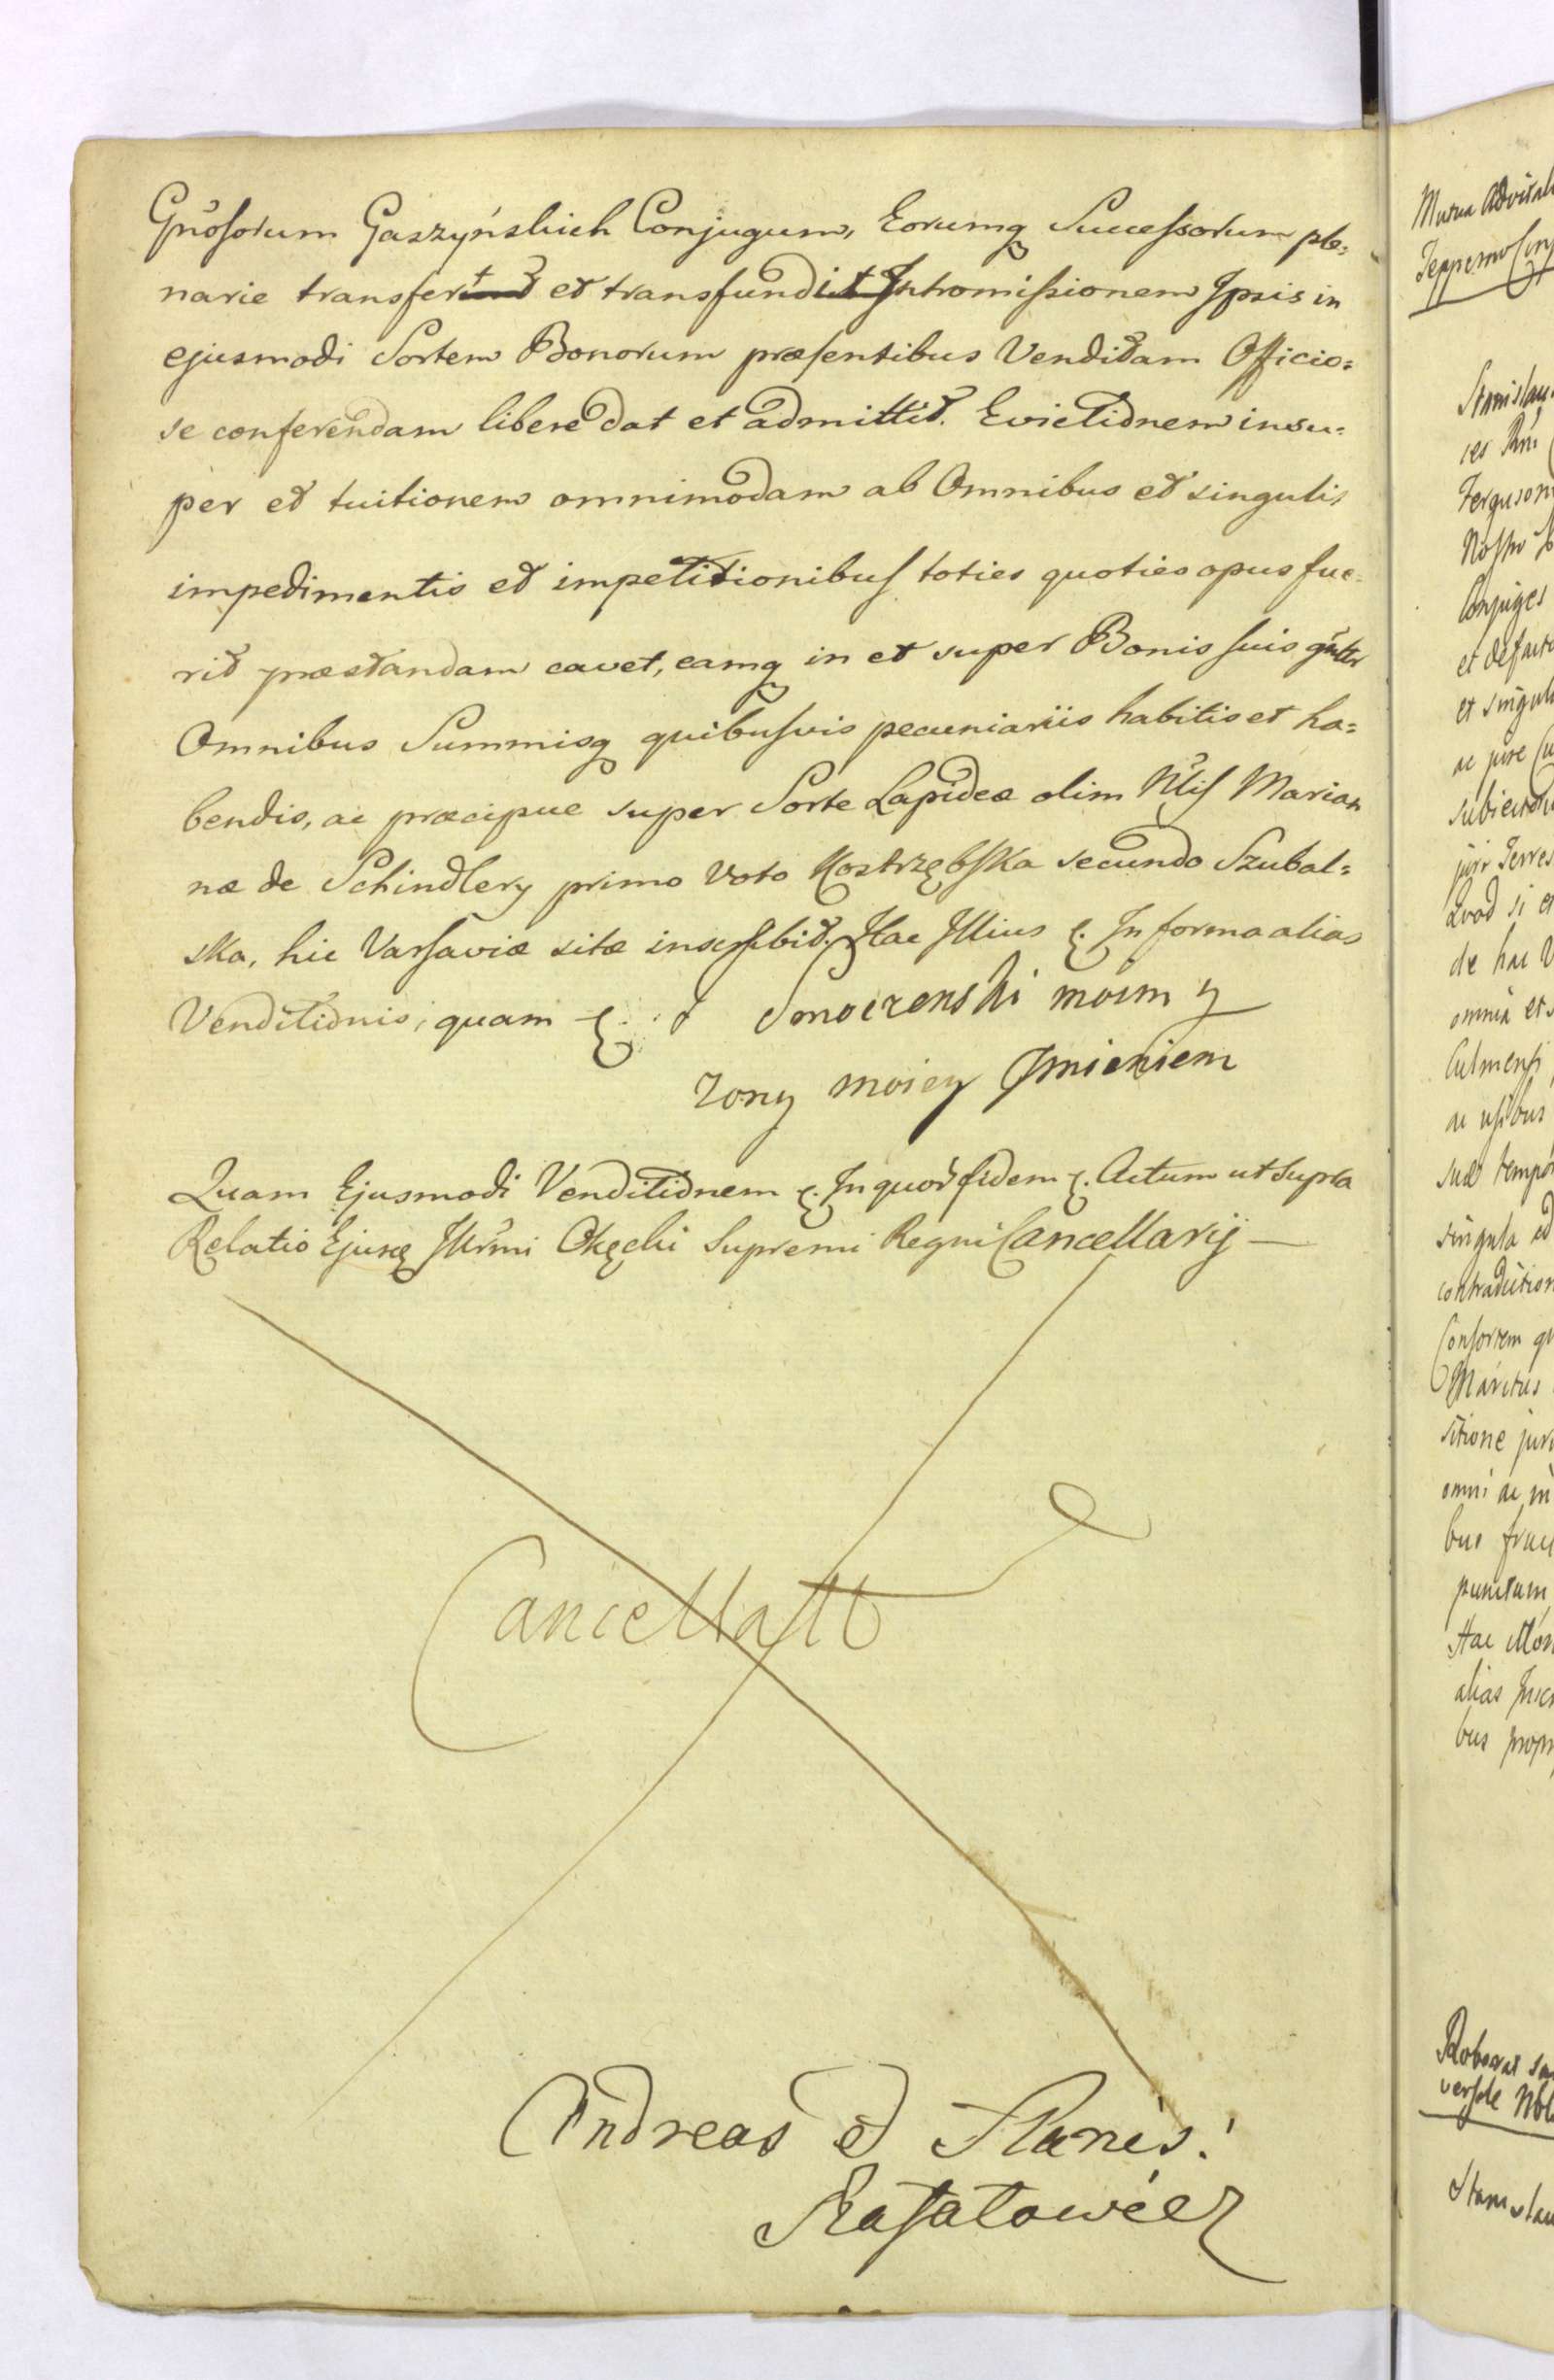 Gñosorum Gaszyńskich Conjugum, Eorumq Successorum ple=
narie transfert et transfundit Intromissionem Ipsis in
ejusmodi Sortem Bonorum præsentibus Venditam Officio=
se conferendam libere dat et admittit. Evictiõnem insu=
per et tuitionem omnimodam ab Omnibus et singulis
impedimentis et impetitionibus toties quoties opus fue=
rit præstandam cavet, eamq in et super Bonis suis gñltr
Omnibus Summisq quibusvis pecuniariis habitis et ha=
bendis, ac præcipue super Sorte Lapideæ olim Nŏlis Marian
næ de Schindlery primo voto Kostrzębska secundo Szubal=
ska, hic Varsaviæ sitæ inscribit. Hac Illius &. In forma alias
Venditiõnis, quam &.
moim y
zony moiey Imieniem
Quam Ejusmodi Venditiõnem &. In quor̃ fidem &. Actum ut supra
Relatio Ejusq Illr̃mi Okęcki Supremi Regni Cancellarij —
Cancellatt
Andreas et
Mutua Advital
Stanislau
ces
Ferguson
Nostro
Conjuges
et defacto
et singul
ac jure
Quod si
de hac V
omnia et
Culmensi
ac
suæ tempo
singula
contradiction
Consortem qu
Maritus
sitione juri
omni ac in
bus
punctum
Hac
alias
bus prop
Roborat
Stanislau